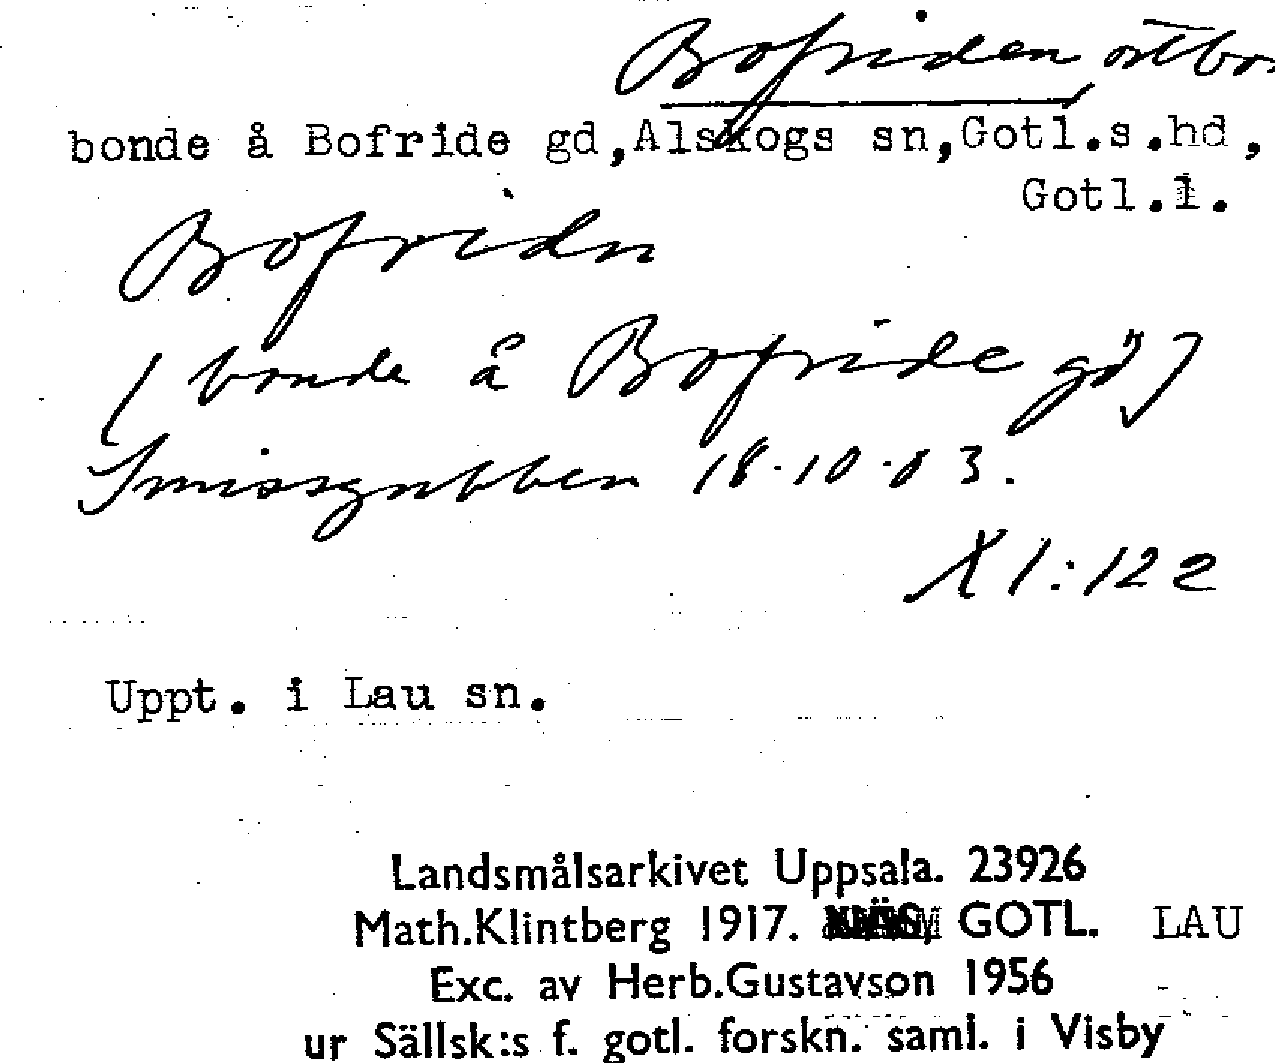 Bofriden, ortbo
bonde å Bofride gd,Alskogs sn,Gotl.s.hd,
Gotl.l.
Bofridn
(bonde å Bofride gd)
Smissgubben 18.10.03.
XI:122
Uppt. i Lau sn.
Landsmålsarkivet Uppsala. 23926
Math.Klintberg 1917. GOTL. LAU
Exc. av Herb.Gustavson 1956
ur Sällsk:s f. gotl. forskn. saml. i Visby